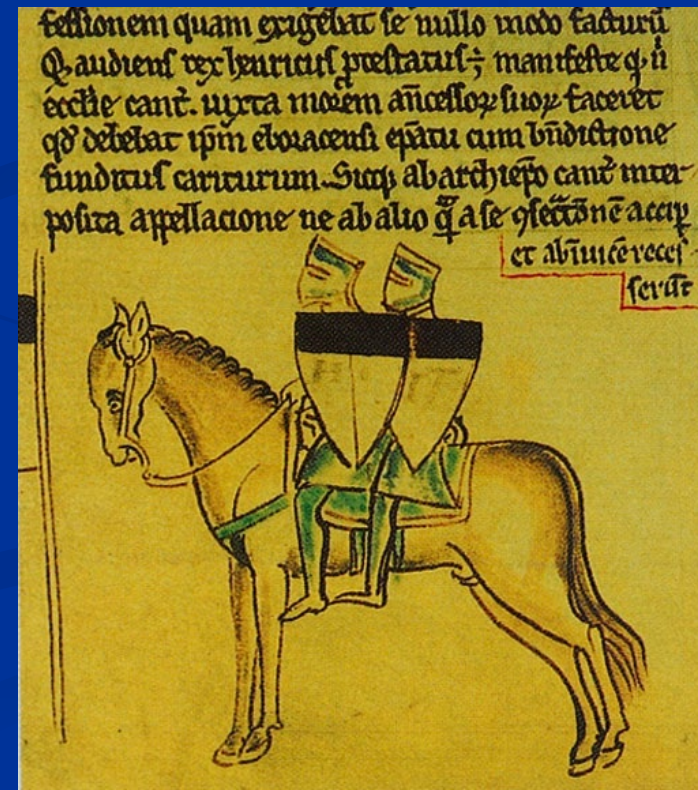 fessionem quam exigebat se nullo modo facturū
Q̄ audiens rex henricus p̄testatus; manifeste q̄ n̄
ecclie cant̄. iuxta morem ancessoꝝ suoꝝ faceret
qd̄ debebat ip̄m eboracensi ep̄atu cum bn̄dictione
funditus cariturum. Sicqꝫ ab archiep̄o cant̄ inter
posita appellacione ne ab alio q̄ a se ꝯsec̄tōnē accip̄
et abīuicē reces
serūt